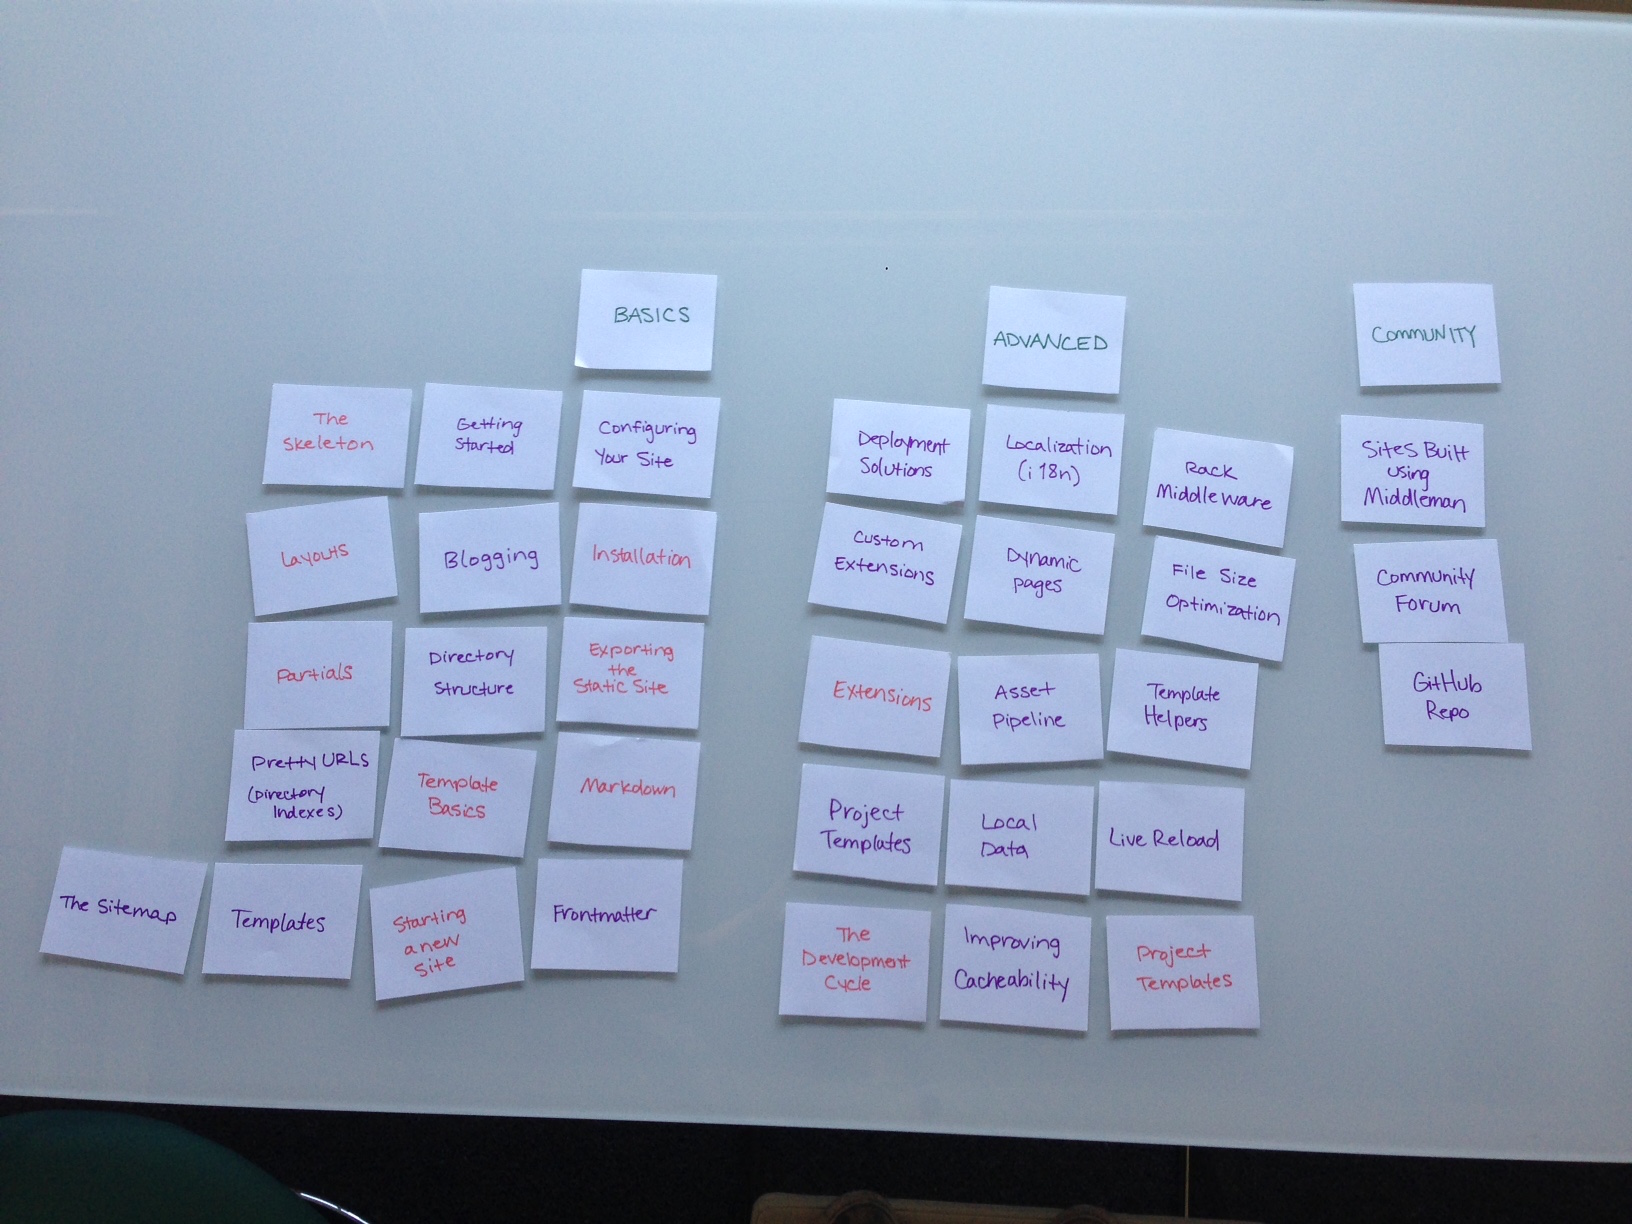 BASICS
The
Skeleton
Getting
Started
Configuring
Your Site
Layouts
Blogging
Installation
Partials
Directory
Structure
Exporting
the
Static Site
Pretty URLs
(Directory
Indexes)
Template
Basics
Markdown
The Sitemap
Templates
Starting
a new
Site
Frontmatter
ADVANCED
Deployment
Solutions
Localization
(i18n)
Rack
Middleware
Custom
Extensions
Dynamic
pages
File Size
Optimization
Extensions
Asset
Pipeline
Template
Helpers
Project
Templates
Local
Data
Live Reload
The
Development
Cycle
Improving
Cacheability
Project
Templates
COMMUNITY
Sites Built
using
Middleman
Community
Forum
GitHub
Repo